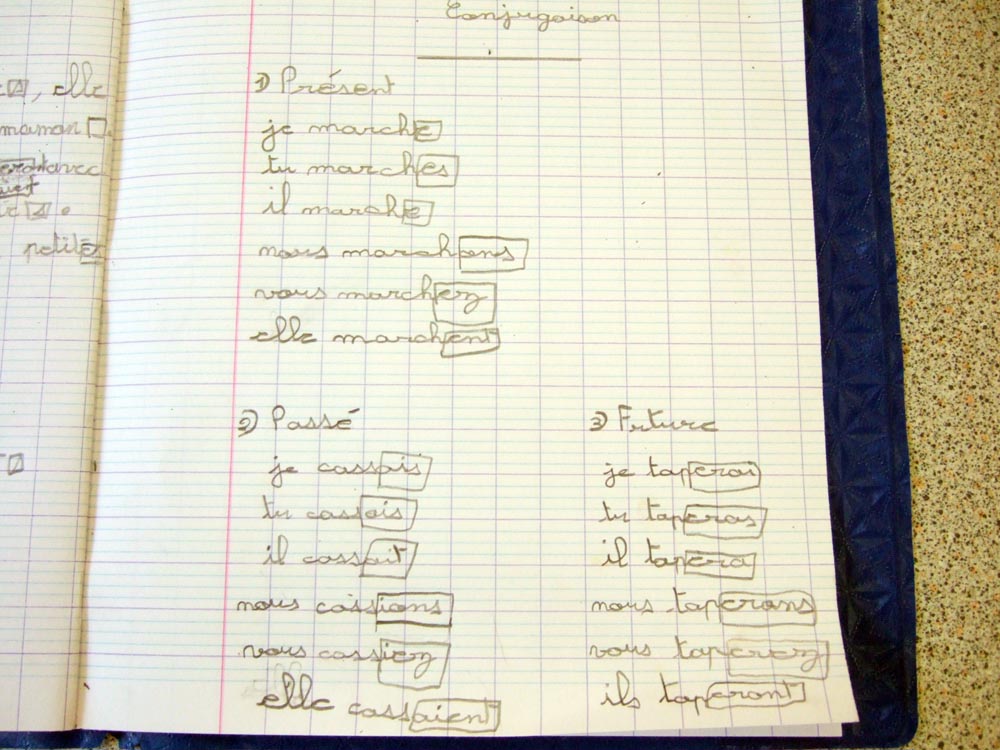 Conjugaison
1) Présent
je marche
tu marches
il marche
nous marchons
vous marchez
elle marchent
2) Passé
je cassais
tu cassais
il cassait
nous cassions
vous cassiez
elle cassaient
3) Future
je taperai
tu taperas
il tapera
nous taperons
vous taperez
ils taperont
, elle
maman
avec
petites